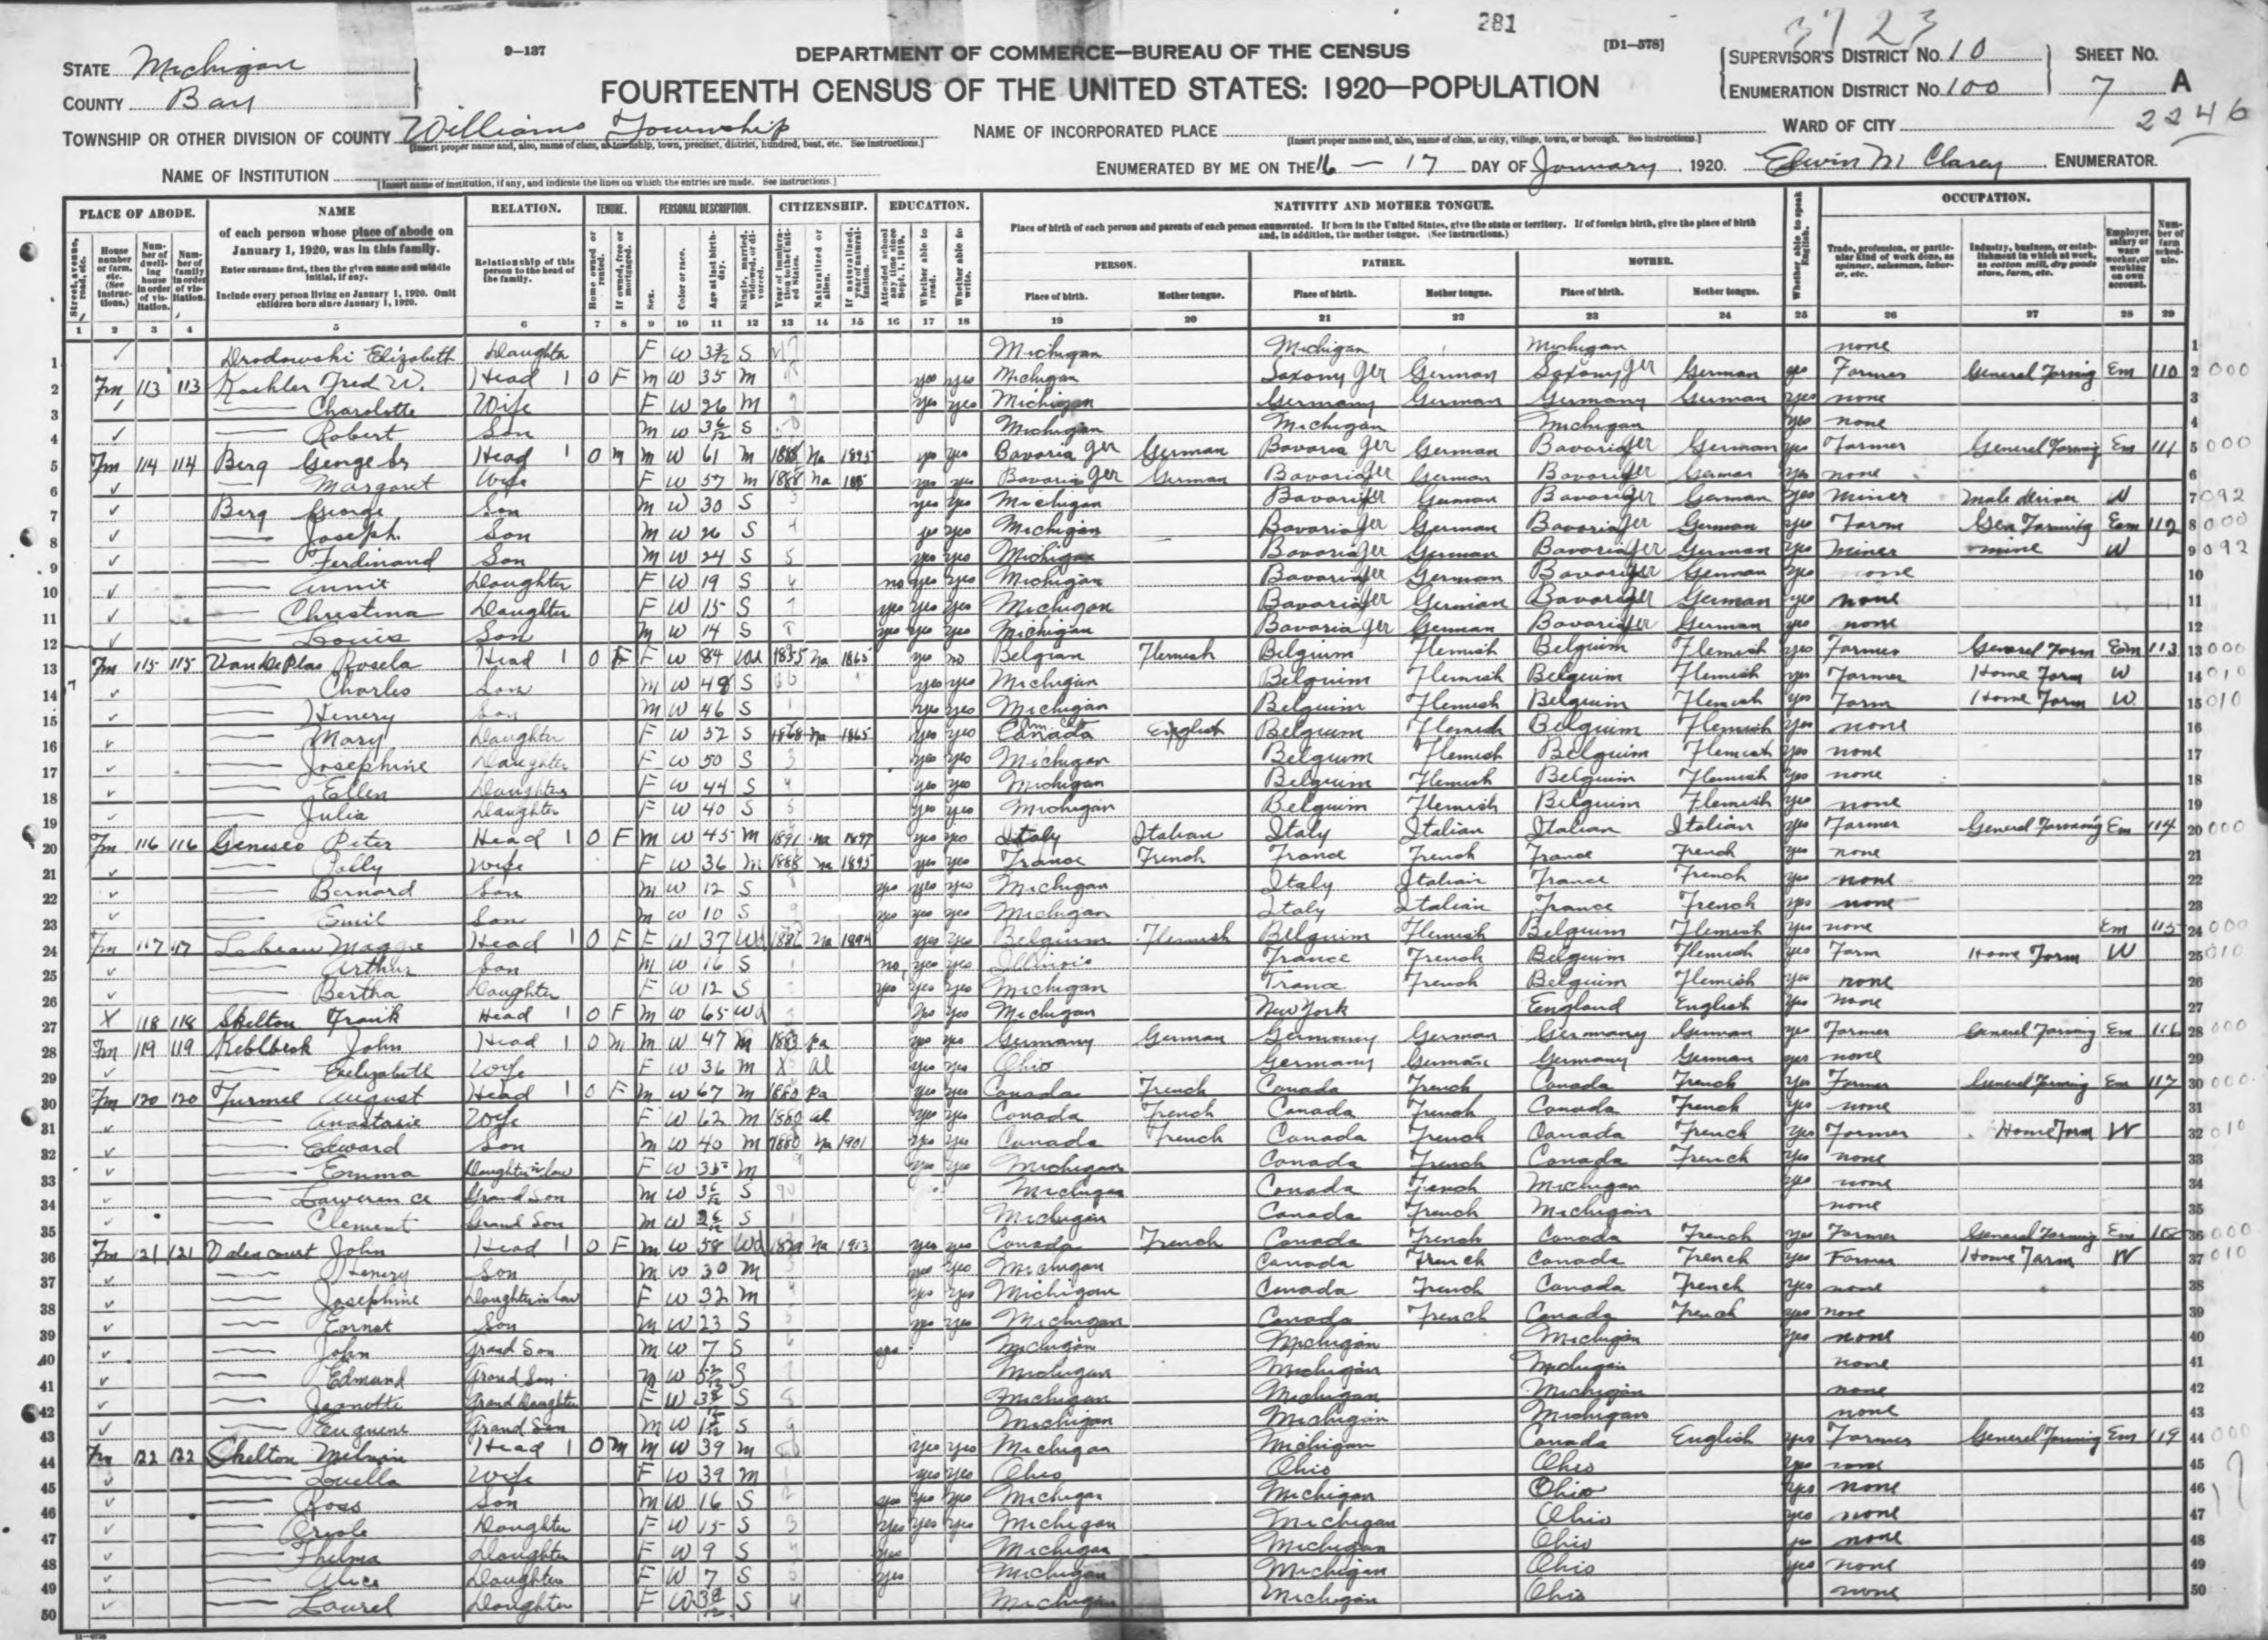 281
3723
9-137
DEPARTMENT OF COMMERCE—BUREAU OF THE CENSUS
[D1-578]
STATE Michigan
SUPERVISOR'S DISTRICT No. 10 SHEET No.
COUNTY Bay
FOURTEENTH CENSUS OF THE UNITED STATES: 1920—POPULATION
ENUMERATION DISTRICT No. 100 7 A
2246
TOWNSHIP OR OTHER DIVISION OF COUNTY Williams Township
NAME OF INCORPORATED PLACE
WARD OF CITY
[Insert proper name and, also, name of class, as township, town, precinct, district, hundred, beat, etc. See instructions.]
[Insert proper name and, also, name of class, as city, village, town, or borough. See instructions.]
NAME OF INSTITUTION
[Insert name of institution, if any, and indicate the lines on which the entries are made. See instructions.]
ENUMERATED BY ME ON THE 16 — 17 DAY OF January, 1920. Edwin M Clarey ENUMERATOR.
PLACE OF ABODE. NAME RELATION. TENURE. PERSONAL DESCRIPTION. CITIZENSHIP. EDUCATION. NATIVITY AND MOTHER TONGUE. OCCUPATION.
of each person whose place of abode on January 1, 1920, was in this family.
Enter surname first, then the given name and middle initial, if any.
Include every person living on January 1, 1920. Omit children born since January 1, 1920.
Relationship of this person to the head of the family.
Place of birth of each person and parents of each person enumerated. If born in the United States, give the state or territory. If of foreign birth, give the place of birth and, in addition, the mother tongue. (See instructions.)
PERSON. FATHER. MOTHER.
Place of birth. Mother tongue. Place of birth. Mother tongue. Place of birth. Mother tongue.
1 2 3 4 5 6 7 8 9 10 11 12 13 14 15 16 17 18 19 20 21 22 23 24 25 26 27 28 29
1 Drodowski Elizabeth Daughter F W S Michigan Michigan Michigan none 1
2 Fm 113 113 Kachler Fred W. Head 1 O F M W 35 M yes yes Michigan Saxony Ger German Saxony Ger German yes Farmer General Farming Em 110 2 000
3 Charolotte Wife F W 26 M yes yes Michigan Germany German Germany German yes none 3
4 Robert Son M W S Michigan Michigan Michigan yes none 4
5 Fm 114 114 Berg George Sr Head 1 O M M W 61 M 1888 Na 1895 yes yes Bavaria Ger German Bavaria Ger German Bavaria Ger German yes Farmer General Farming Em 111 5 000
6 Margaret Wife F W 57 M 1888 Na yes yes Bavaria Ger German Bavaria Ger German Bavaria Ger German yes none 6
7 Berg George Son M W 30 S yes yes Michigan Bavaria Ger German Bavaria Ger German yes Miner Mule driver W 7 092
8 Joseph Son M W 26 S yes yes Michigan Bavaria Ger German Bavaria Ger German yes Farm Gen Farming Em 112 8 000
9 Ferdinand Son M W 24 S yes yes Michigan Bavaria Ger German Bavaria Ger German yes Miner mine W 9 092
10 Annie Daughter F W 19 S no yes yes Michigan Bavaria Ger German Bavaria Ger German yes none 10
11 Christina Daughter F W 15 S yes yes yes Michigan Bavaria Ger German Bavaria Ger German yes none 11
12 Louis Son M W 14 S yes yes yes Michigan Bavaria Ger German Bavaria Ger German yes none 12
13 Fm 115 115 VanDePlas Rosela Head 1 O F F W 84 Wd 1855 Na 1865 yes no Belgian Flemish Belgium Flemish Belgium Flemish yes Farmer General Farm Em 113 13 000
14 Charles Son M W 48 S yes yes Michigan Belgium Flemish Belgium Flemish yes Farmer Home Farm W 14 010
15 Henery Son M W 46 S yes yes Michigan Belgium Flemish Belgium Flemish yes Farm Home Farm W 15 010
16 Mary Daughter F W 52 S Na 1865 yes yes Canada English Belgium Flemish Belgium Flemish yes none 16
17 Josephine Daughter F W 50 S yes yes Michigan Belgium Flemish Belgium Flemish yes none 17
18 Ellen Daughter F W 44 S yes yes Michigan Belgium Flemish Belgium Flemish yes none 18
19 Julia Daughter F W 40 S yes yes Michigan Belgium Flemish Belgium Flemish yes none 19
20 Fm 116 116 Genesco Peter Head 1 O F M W 45 M 1891 Na 1897 yes yes Italy Italian Italy Italian Italian Italian yes Farmer General Farming Em 114 20 000
21 Polly Wife F W 36 M 1888 Na 1895 yes yes France French France French France French yes none 21
22 Bernard Son M W 12 S yes yes yes Michigan Italy Italian France French yes none 22
23 Emil Son M W 10 S yes yes yes Michigan Italy Italian France French yes none 23
24 Fm 117 117 Labeau Maggie Head 1 O F F W 37 Wd Na 1894 yes yes Belgium Flemish Belgium Flemish Belgium Flemish yes none Em 115 24 000
25 Arthur Son M W 16 S no yes yes Illinois France French Belgium Flemish yes Farm Home Farm W 25 010
26 Bertha Daughter F W 12 S yes yes yes Michigan France French Belgium Flemish yes none 26
27 X 118 118 Skelton Frank Head 1 O F M W 65 Wd yes yes Michigan New York England English yes none 27
28 Fm 119 119 Keblbeck John Head 1 O M M W 47 M 1883 Pa yes yes Germany German Germany German Germany German yes Farmer General Farming Em 116 28 000
29 Exelizabeth Wife F W 36 M X Al yes yes Ohio Germany German Germany German yes none 29
30 Fm 120 120 Turmel August Head 1 O F M W 67 M 1880 Pa yes yes Canada French Canada French Canada French yes Farmer General Farming Em 117 30 000
31 Anastasie Wife F W 62 M 1880 Al yes yes Canada French Canada French Canada French yes none 31
32 Edward Son M W 40 M 1880 Na 1901 yes yes Canada French Canada French Canada French yes Farmer Home Farm W 32 010
33 Emma Daughter in law F W 35 M yes yes Michigan Canada French Canada French yes none 33
34 Lawerence Grand Son M W S Michigan Canada French Michigan yes none 34
35 Clement Grand Son M W S Michigan Canada French Michigan none 35
36 Fm 121 121 Valencourt John Head 1 O F M W 58 Wd Na 1913 yes yes Canada French Canada French Canada French yes Farmer General Farming Em 36 000
37 Henery Son M W 30 M yes yes Michigan Canada French Canada French yes Farmer Home Farm W 37 010
38 Josephine Daughter in law F W 32 M yes yes Michigan Canada French Canada French yes none 38
39 Earnet Son M W 23 S yes yes Michigan Canada French Canada French yes none 39
40 John Grand Son M W 7 S yes Michigan Michigan Michigan yes none 40
41 Edmand Grand Son M W S Michigan Michigan Michigan none 41
42 Jeanette Grand Daughter F W S Michigan Michigan Michigan none 42
43 Euguene Grand Son M W S Michigan Michigan Michigan none 43
44 Fm 122 122 Skelton Melvin Head 1 O M M W 39 M yes yes Michigan Michigan Canada English yes Farmer General Farming Em 119 44 000
45 Louella Wife F W 39 M yes yes Ohio Ohio Ohio yes none 45
46 Ross Son M W 16 S yes yes yes Michigan Michigan Ohio yes none 46
47 Oriole Daughter F W 15 S yes yes yes Michigan Michigan Ohio yes none 47
48 Thelma Daughter F W 9 S yes Michigan Michigan Ohio yes none 48
49 Alice Daughter F W 7 S yes Michigan Michigan Ohio yes none 49
50 Laurel Daughter F W S Michigan Michigan Ohio none 50